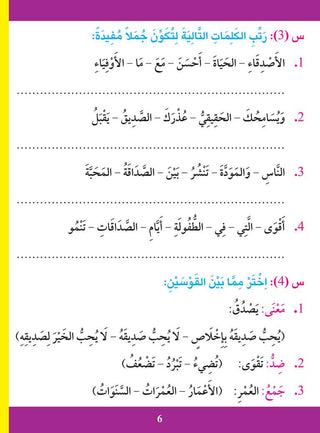 س (3): رَتِّبِ الكَلِمَاتِ التَّالِيَةَ لِتُكَوِّنَ جُمَلاً مُفِيدَةً:
1. الأَصْدِقَاءِ – الحَيَاةَ – أَحْسَنَ – مَعَ – مَا – الأَوْفِيَاءِ
................................................
2. وَيُسَامِحُكَ – الحَقِيقِيُّ – عُذْرَكَ – الصَّدِيقُ – يَقْبَلُ
................................................
3. النَّاسِ – وَالمَوَدَّةَ – تَنْشُرُ – بَيْنَ – الصَّدَاقَةُ – المَحَبَّةَ
................................................
4. أَقْوَى – الَّتِي – فِي – الطُّفُولَةِ – أَيَّامِ – الصَّدَاقَاتِ – تَنْمُو
................................................
س (4): اِخْتَرْ مِمَّا بَيْنَ القَوْسَيْنِ:
1. مَعْنَى: يَصْدُقُ:
(يُحِبُّ صَدِيقَهُ بِإِخْلَاصٍ – لَا يُحِبُّ صَدِيقَهُ – لَا يُحِبُّ الخَيْرَ لِصَدِيقِهِ)
2. ضِدُّ: تَقْوَى: (تُضِيءُ – تَبْرُدُ – تَضْعُفُ)
3. جَمْعُ: العُمْرِ: (الأَعْمَارُ – العُمْرَاتُ – السَّنَوَاتُ)
6